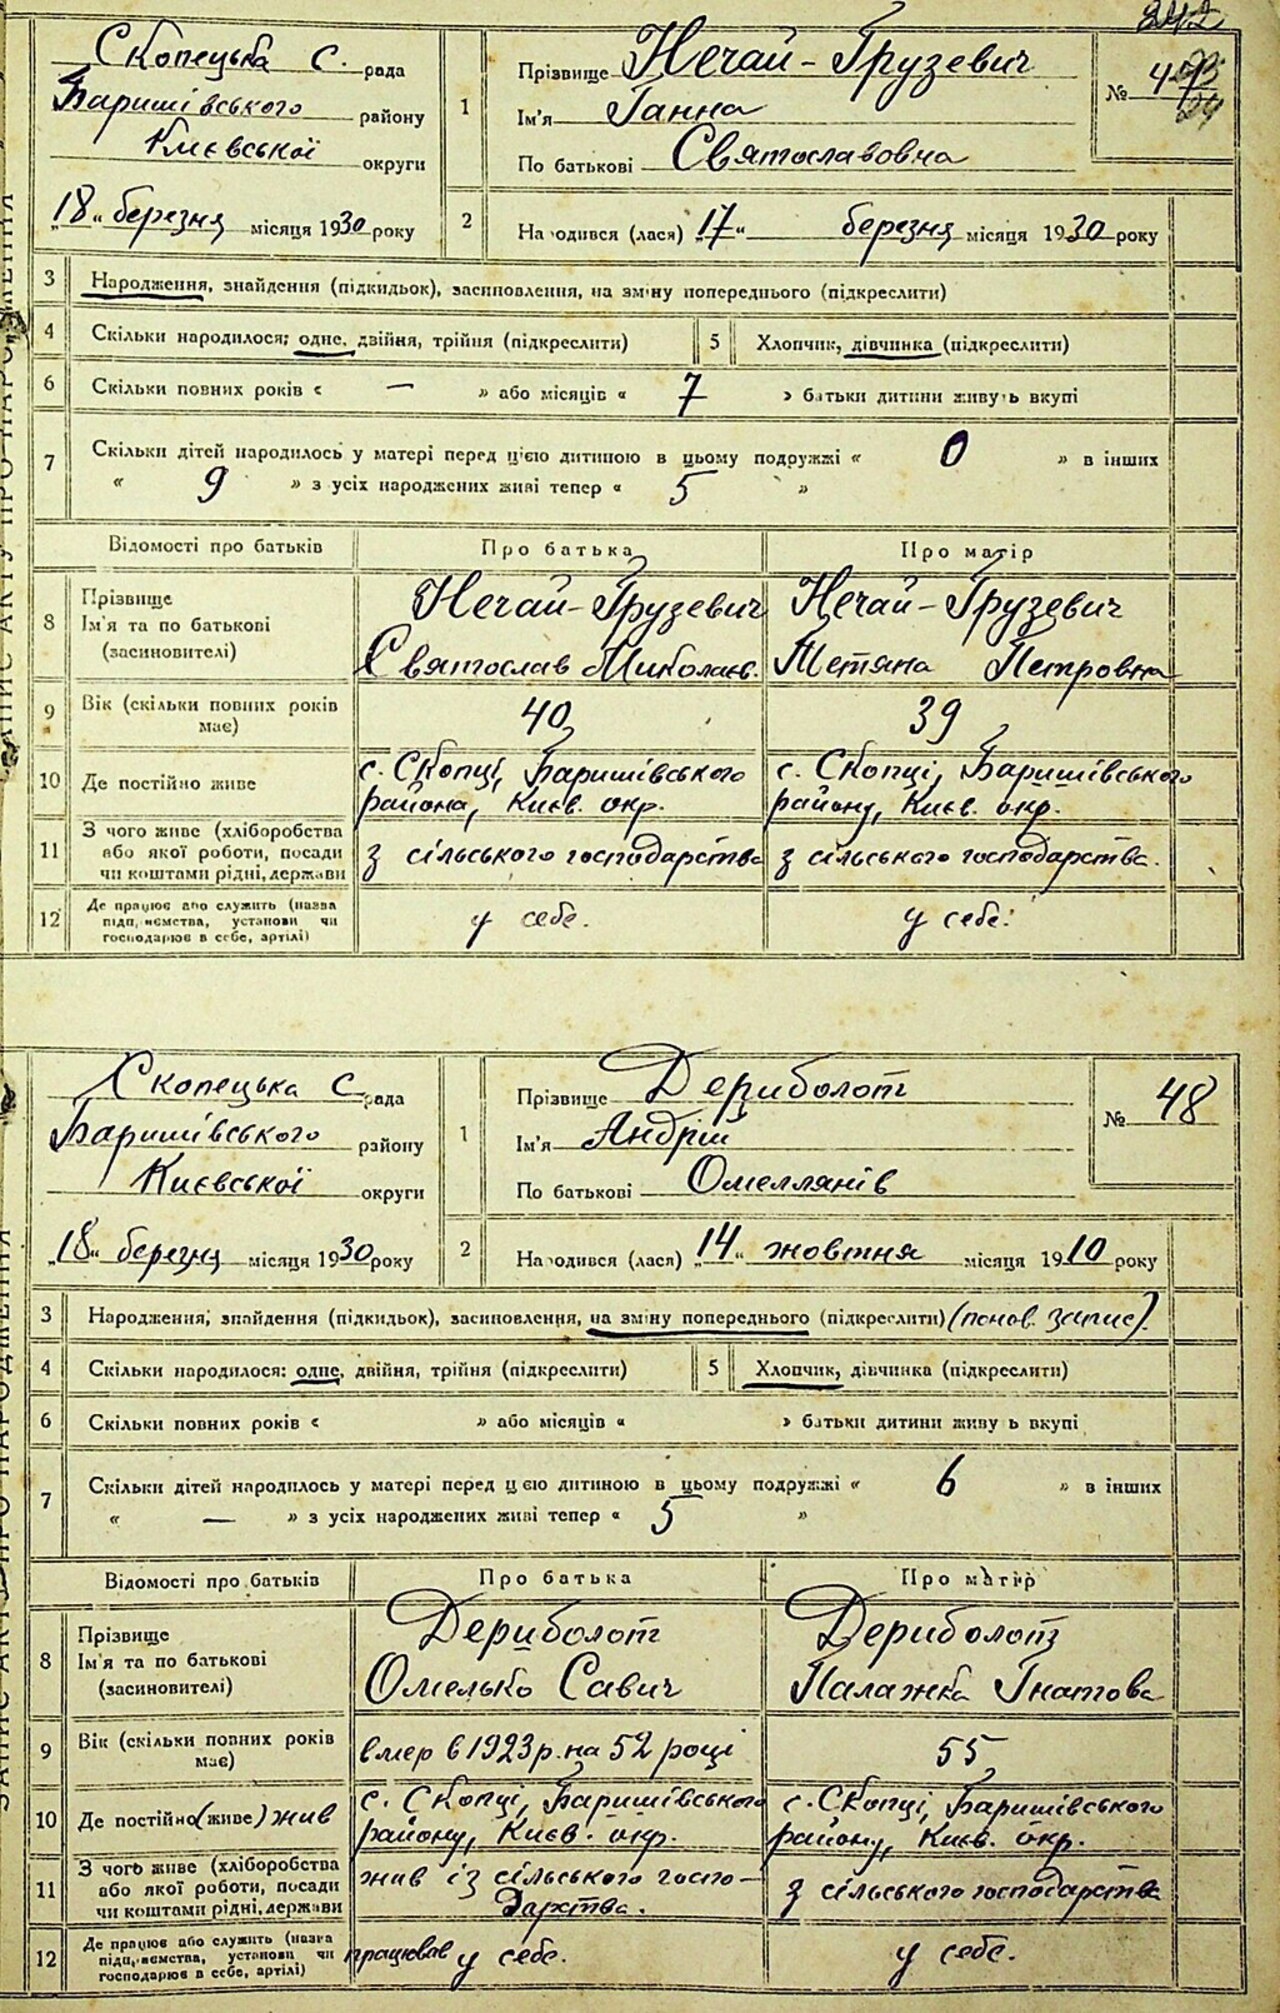 242
Скопецька С. рада
Баришівського району
Києвської округи
„18“ березня місяця 1930 року
1
Прізвище Нечай-Грузевич
Ім'я Ганна
По батькові Святославовна
№ 47
2
Народився (лася) „17“ березня місяця 1930 року
3 Народження, знайдення (підкидьок), засиновлення, на зміну попереднього (підкреслити)
4 Скільки народилося; одне, двійня, трійня (підкреслити) 5 Хлопчик, дівчинка (підкреслити)
6 Скільки повних років « — » або місяців « 7 » батьки дитини живуть вкупі
7 Скільки дітей народилось у матері перед цією дитиною в цьому подружжі « 0 » в інших
« 9 » з усіх народжених живі тепер « 5 »
Відомості про батьків Про батька Про матір
8 Прізвище Ім'я та по батькові (засиновителі)
Нечай-Грузевич Святослав Миколаєв.
Нечай-Грузевич Тетяна Петровна
9 Вік (скільки повних років має) 40 39
10 Де постійно живе
с. Скопці, Баришівського района, Києв. окр.
с. Скопці, Баришівського району, Києв. окр.
11 З чого живе (хліборобства або якої роботи, посади чи коштами рідні, держави
з сільського господарства
з сільського господарства.
12 Де працює або служить (назва підприємства, установи чи господарює в себе, артілі)
у себе.
у себе.
ЗАПИС АКТУ ПРО НАРОДЖЕННЯ
Скопецька С. рада
Баришівського району
Києвської округи
„18“ березня місяця 1930 року
1
Прізвище Дериболот
Ім'я Андрій
По батькові Омеллянів
№ 48
2
Народився (лася) „14“ жовтня місяця 1910 року
3 Народження, знайдення (підкидьок), засиновлення, на зміну попереднього (підкреслити) (понов. запис).
4 Скільки народилося: одне, двійня, трійня (підкреслити) 5 Хлопчик, дівчинка (підкреслити)
6 Скільки повних років « » або місяців « » батьки дитини живуть вкупі
7 Скільки дітей народилось у матері перед цією дитиною в цьому подружжі « 6 » в інших
« — » з усіх народжених живі тепер « 5 »
Відомості про батьків Про батька Про матір
8 Прізвище Ім'я та по батькові (засиновителі)
Дериболот Омелько Савич
Дериболот Палажка Гнатова
9 Вік (скільки повних років має) вмер в 1923 р. на 52 році 55
10 Де постійно (живе) жив
с. Скопці, Баришівського району, Києв. окр.
с. Скопці, Баришівського району, Києв. окр.
11 З чого живе (хліборобства або якої роботи, посади чи коштами рідні, держави
жив із сільського господарства.
з сільського господарства
12 Де працює або служить (назва підприємства, установи чи господарює в себе, артілі)
працював у себе.
у себе.
ЗАПИС АКТУ ПРО НАРОДЖЕННЯ